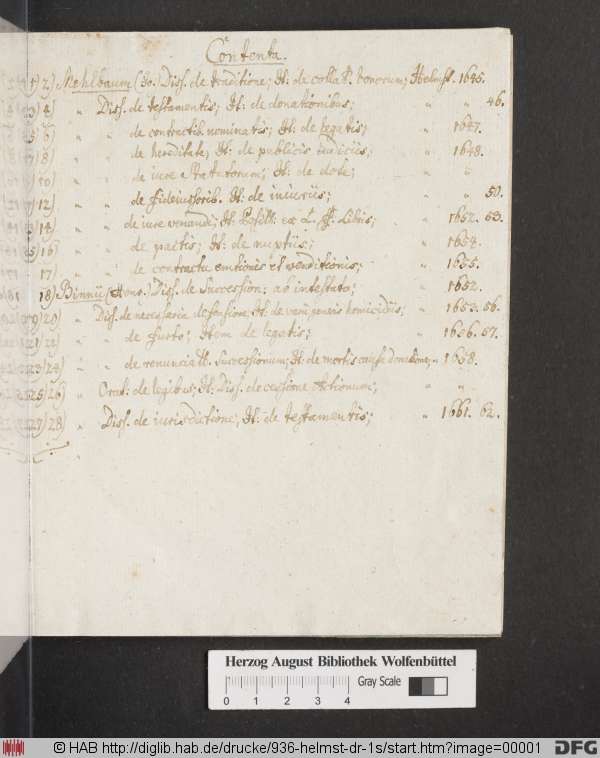 Contenta.
1) 2) Mehlbaum (Jo.) Diss. de traditione; It. de collat. bonorum; Helmst. 1645.
3) 4) " Diss. de testamentis; It. de donationibus; " " 46.
5) 6) " " de contractib. nominatis; It. de legatis; " 1647.
7) 8) " " de hereditate, It. de publicis iudiciis; " 1648.
9) 10) " " de iure Praetorum; It. de dote; " "
11) 12) " " de fideiussorib. It. de iniuriis; " 50.
13) 14) " " de iure venandi; It. ex Libris; " 1652. 53.
15) 16) " " de pactis; It. de nuptiis; "
17) " " de contractu emtionis et venditionis; " 1655.
18) Binnii Diss. de Succession: ab intestato; " 1652.
19) 20) " Diss. de necessaria defensione; It. de varii generis homicidiis; " 1653. 56.
21) 22) " " de furto; Item de legatis; " 1656. 57.
23) 24) " " de renunciat. Successionum; It. de mortis causa donatione; " 1658.
25) 26) " Orat. de legibus; It. Diss. de cessione Actionum; " "
27) 28) " Diss. de iurisdictione; It. de testamentis; " 1661. 62.
Herzog August Bibliothek Wolfenbüttel
0 1 2 3 4 Gray Scale
© HAB http://diglib.hab.de/drucke/936-helmst-dr-1s/start.htm?image=00001 DFG